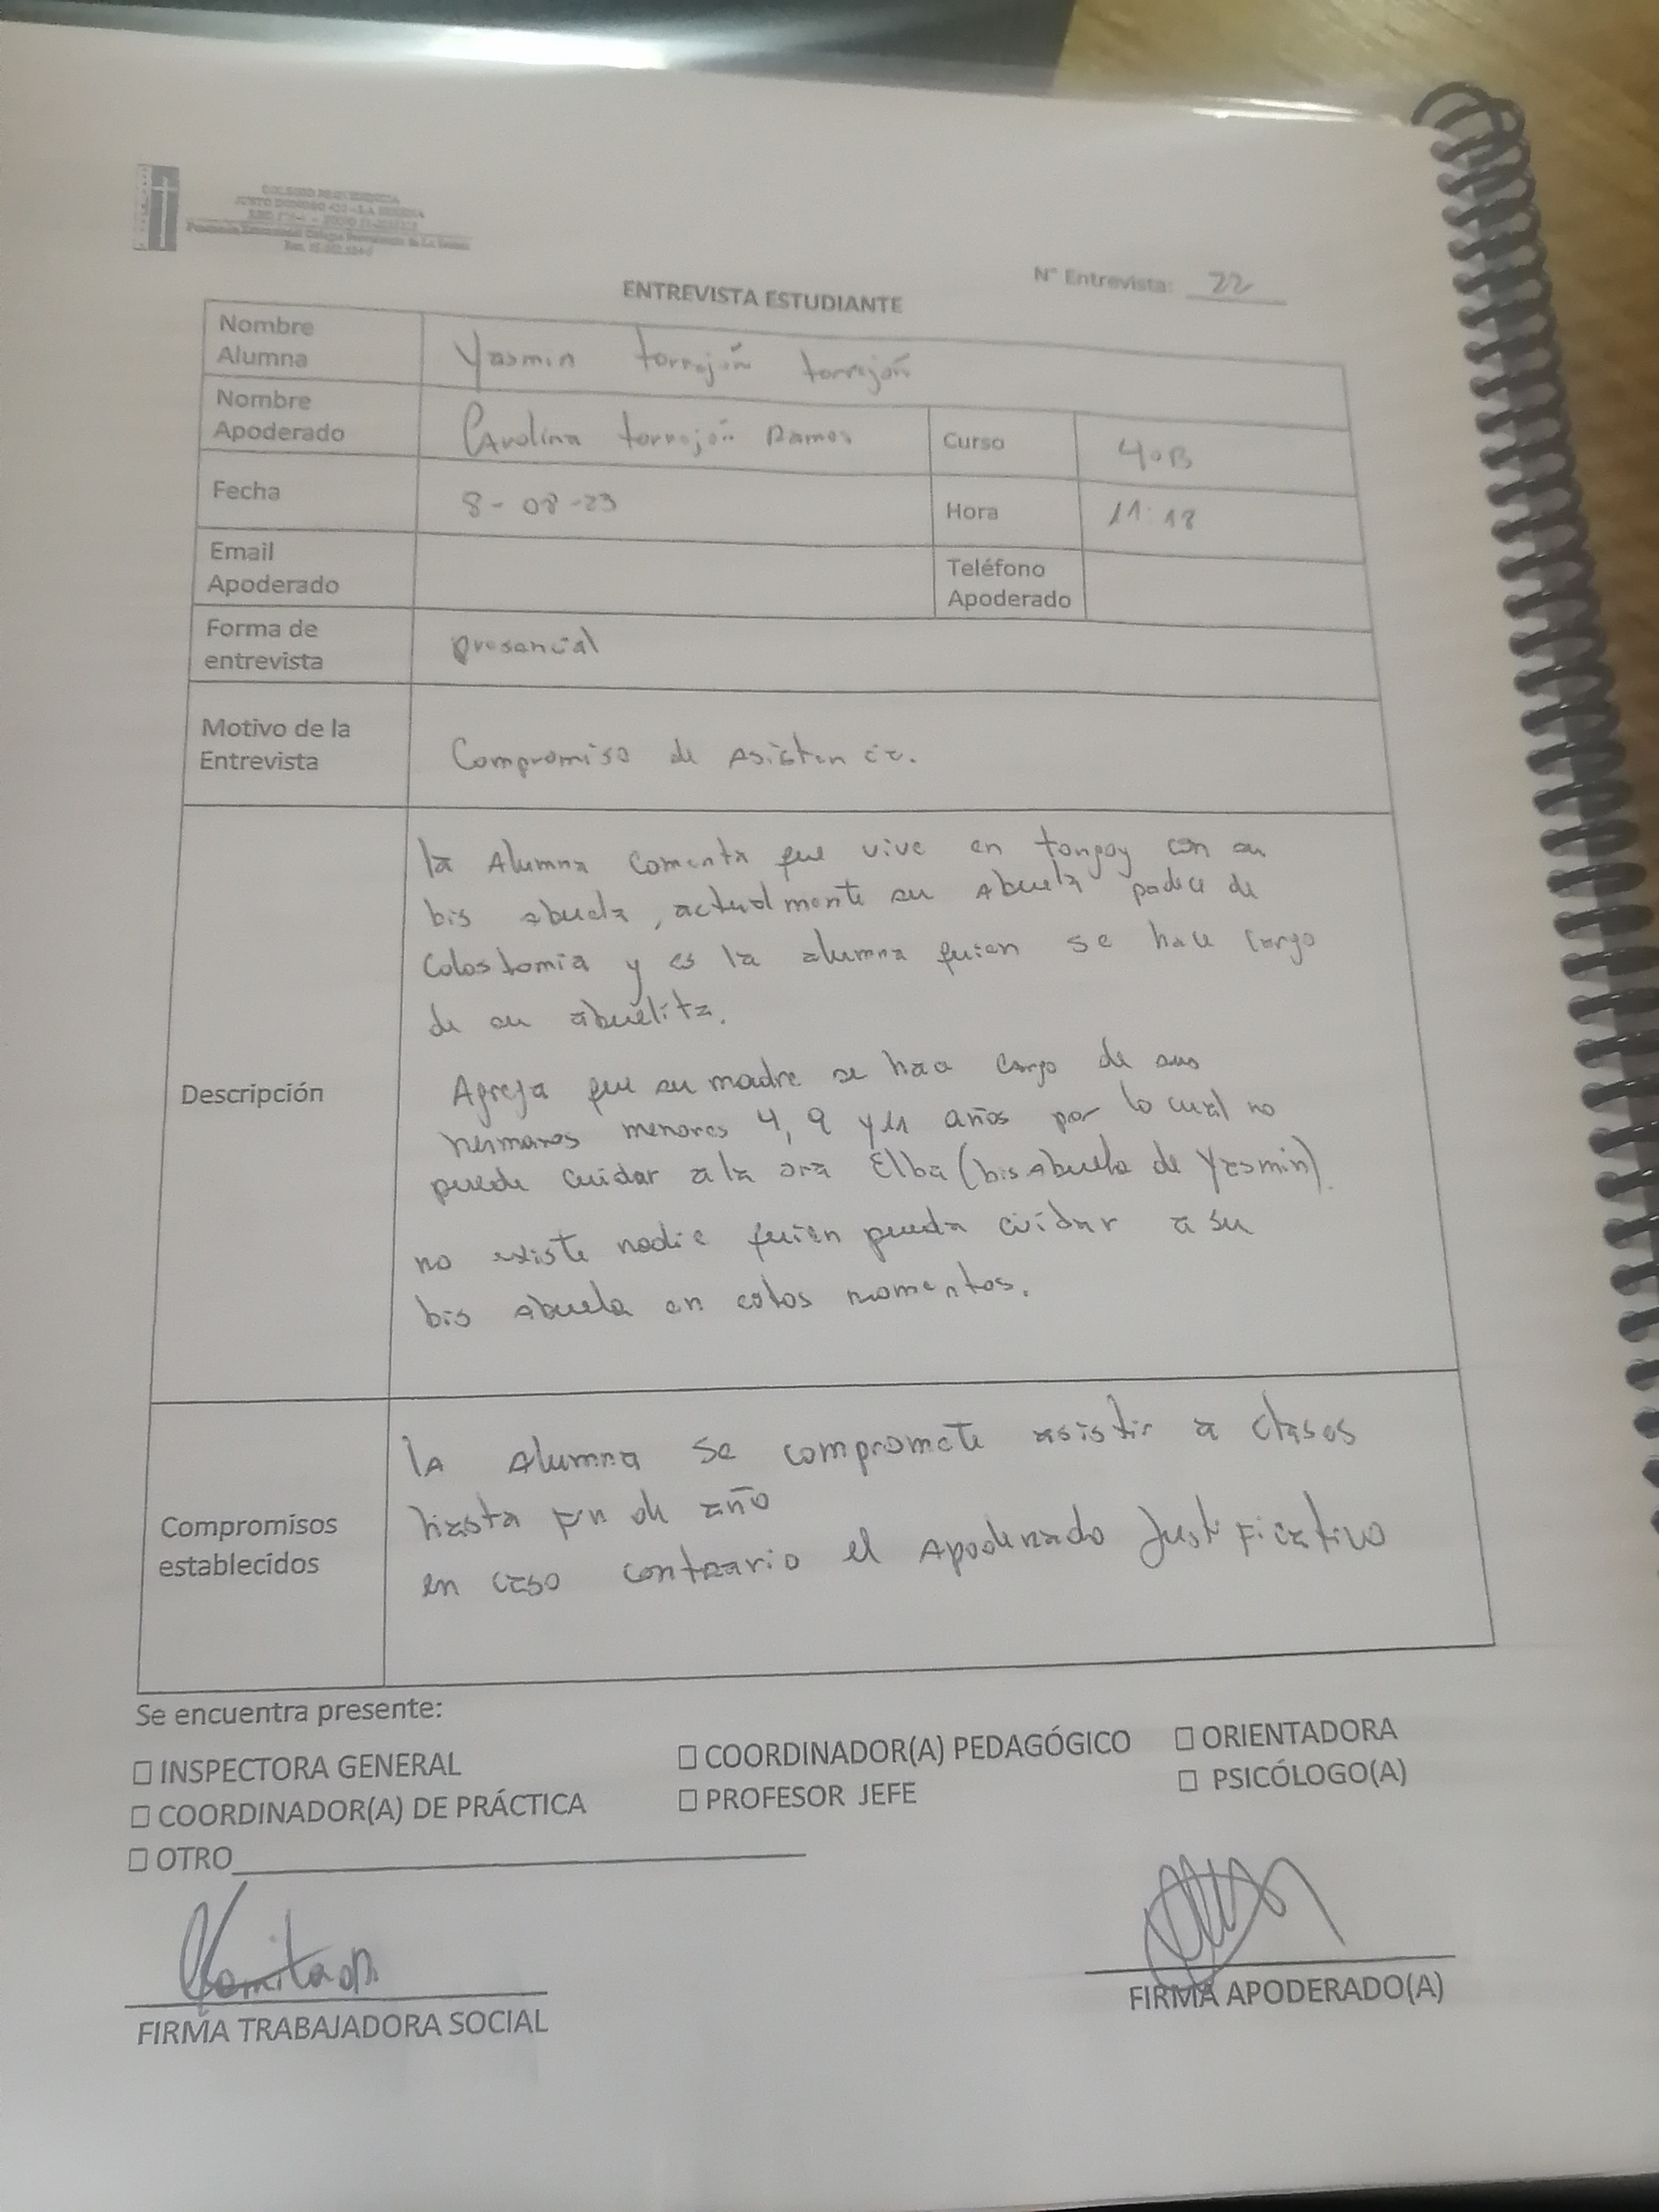 COLEGIO PROVIDENCIA
JUSTO DONOSO 420 - LA SERENA
Fundación Educacional Colegio Providencia de La Serena
N° Entrevista: 22
ENTREVISTA ESTUDIANTE
Nombre Alumna
Yasmin torrejón torrejón
Nombre Apoderado
Carolina torrejón Ramos
Curso
4°B
Fecha
8-08-23
Hora
11:18
Email Apoderado
Teléfono Apoderado
Forma de entrevista
presencial
Motivo de la Entrevista
Compromiso de Asistencia.
Descripción
la Alumna comenta que vive en tongoy con su
bis abuela, actualmente su Abuela padece de
Colostomia y es la alumna quien se hace cargo
de su abuelita.
Agrega que su madre se hace cargo de sus
hermanos menores 4, 9 y 11 años por lo cual no
puede cuidar a la sra Elba (bis abuela de Yasmin).
no existe nadie quien pueda cuidar a su
bis abuela en estos momentos.
Compromisos establecidos
la Alumna se compromete asistir a clases
hasta fin de año
en caso contrario el Apoderado Justificativo
Se encuentra presente:
☐ INSPECTORA GENERAL ☐ COORDINADOR(A) PEDAGÓGICO ☐ ORIENTADORA
☐ COORDINADOR(A) DE PRÁCTICA ☐ PROFESOR JEFE ☐ PSICÓLOGO(A)
☐ OTRO
FIRMA TRABAJADORA SOCIAL
FIRMA APODERADO(A)